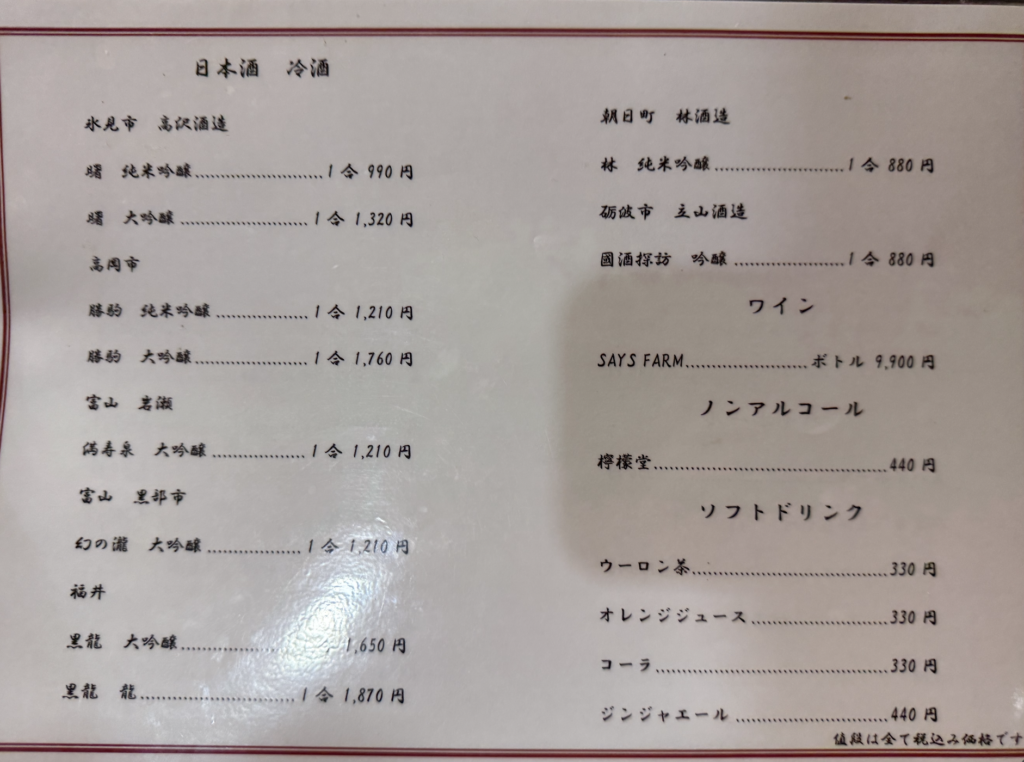 日本酒　冷酒
氷見市　高沢酒造
曙　純米吟醸……………………1合 990円
曙　大吟醸……………………1合 1,320円
高岡市
勝駒　純米吟醸………………1合 1,210円
勝駒　大吟醸…………………1合 1,760円
富山　岩瀬
満寿泉　大吟醸………………1合 1,210円
富山　黒部市
幻の瀧　大吟醸………………1合 1,210円
福井
黒龍　大吟醸………………1,650円
黒龍　龍…………………………1合 1,870円
朝日町　林酒造
林　純米吟醸……………………1合 880円
砺波市　立山酒造
國酒探訪　吟醸…………………1合 880円
ワイン
SAYS FARM……………………ボトル 9,900円
ノンアルコール
檸檬堂……………………………………440円
ソフトドリンク
ウーロン茶………………………………330円
オレンジジュース………………………330円
コーラ……………………………………330円
ジンジャエール…………………………440円
値段は全て税込み価格です